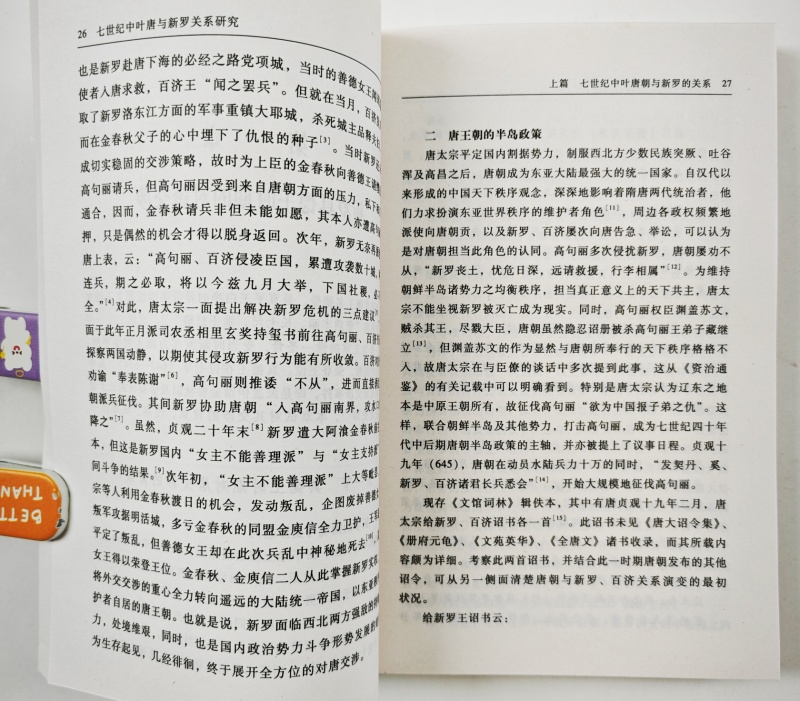 26 七世纪中叶唐与新罗关系研究
也是新罗赴唐下海的必经之路党项城，当时的善德女王闻
使者入唐求救，百济王“闻之罢兵”。但就在当月，百济
取了新罗洛东江方面的军事重镇大耶城，杀死城主品释夫
而在金春秋父子的心中埋下了仇恨的种子[3]。当时新罗
成切实稳固的交涉策略，故时为上臣的金春秋向善德王请
高句丽请兵，但高句丽因受到来自唐朝方面的压力，私下
通合，因而，金春秋请兵非但未能如愿，其本人亦遭高句
押，只是偶然的机会才得以脱身返回。次年，新罗无奈再
唐上表，云：“高句丽、百济侵凌臣国，累遭攻袭数十城，
连兵，期之必取，将以今兹九月大举，下国社稷，必
全。”[4]对此，唐太宗一面提出解决新罗危机的三点建议
面于此年正月派司农丞相里玄奖持玺书前往高句丽、百济
探察两国动静，以期使其侵攻新罗行为能有所收敛。百济
劝谕“奉表陈谢”[6]，高句丽则推诿“不从”，进而直接
朝派兵征伐。其间新罗协助唐朝“入高句丽南界，攻水
降之”[7]。虽然，贞观二十年末[8]新罗遣大阿飡金春秋
本，但这是新罗国内“女主不能善理派”与“女主支持
间斗争的结果。[9]次年初，“女主不能善理派”上大等毗
宗等人利用金春秋渡日的机会，发动叛乱，企图废掉善德
叛军攻据明活城，多亏金春秋的同盟金庾信全力卫护，王
平定了叛乱，但善德女王却在此次兵乱中神秘地死去[10]，
女王得以荣登王位。金春秋、金庾信二人从此掌握新罗实
将外交交涉的重心全力转向遥远的大陆统一帝国，以东
护者自居的唐王朝。也就是说，新罗面临西北两方强敌的
力，处境维艰，同时，也是国内政治势力斗争形势发展的
为生存起见，几经徘徊，终于展开全方位的对唐交涉。
上篇 七世纪中叶唐朝与新罗的关系 27
二 唐王朝的半岛政策
唐太宗平定国内割据势力，制服西北方少数民族突厥、吐谷
浑及高昌之后，唐朝成为东亚大陆最强大的统一国家。自汉代以
来形成的中国天下秩序观念，深深地影响着隋唐两代统治者，他
们力求扮演东亚世界秩序的维护者角色[11]，周边各政权频繁地
派使向唐朝贡，以及新罗、百济屡次向唐告急、举讼，可以认为
是对唐朝担当此角色的认同。高句丽多次侵扰新罗，唐朝屡劝不
从，“新罗丧土，忧危日深，远请救援，行李相属”[12]。为维持
朝鲜半岛诸势力之均衡秩序，担当真正意义上的天下共主，唐太
宗不能坐视新罗被灭亡成为现实。同时，高句丽权臣渊盖苏文，
贼杀其王，尽戮大臣，唐朝虽然隐忍诏册被杀高句丽王弟子藏继
立[13]，但渊盖苏文的作为显然与唐朝所奉行的天下秩序格格不
入，故唐太宗在与臣僚的谈话中多次提到此事，这从《资治通
鉴》的有关记载中可以明确看到。特别是唐太宗认为辽东之地
本是中原王朝所有，故征伐高句丽“欲为中国报子弟之仇”。这
样，联合朝鲜半岛及其他势力，打击高句丽，成为七世纪四十年
代中后期唐朝半岛政策的主轴，并亦被提上了议事日程。贞观十
九年（645），唐朝在动员水陆兵力十万的同时，“发契丹、奚、
新罗、百济诸君长兵悉会”[14]，开始大规模地征伐高句丽。
现存《文馆词林》辑佚本，其中有唐贞观十九年二月，唐
太宗给新罗、百济诏书各一首[15]。此诏书未见《唐大诏令集》、
《册府元龟》、《文苑英华》、《全唐文》诸书收录，而其所载内
容颇为详细。考察此两首诏书，并结合此一时期唐朝发布的其他
诏令，可从另一侧面清楚唐朝与新罗、百济关系演变的最初
状况。
给新罗王诏书云：
BETT
THAN